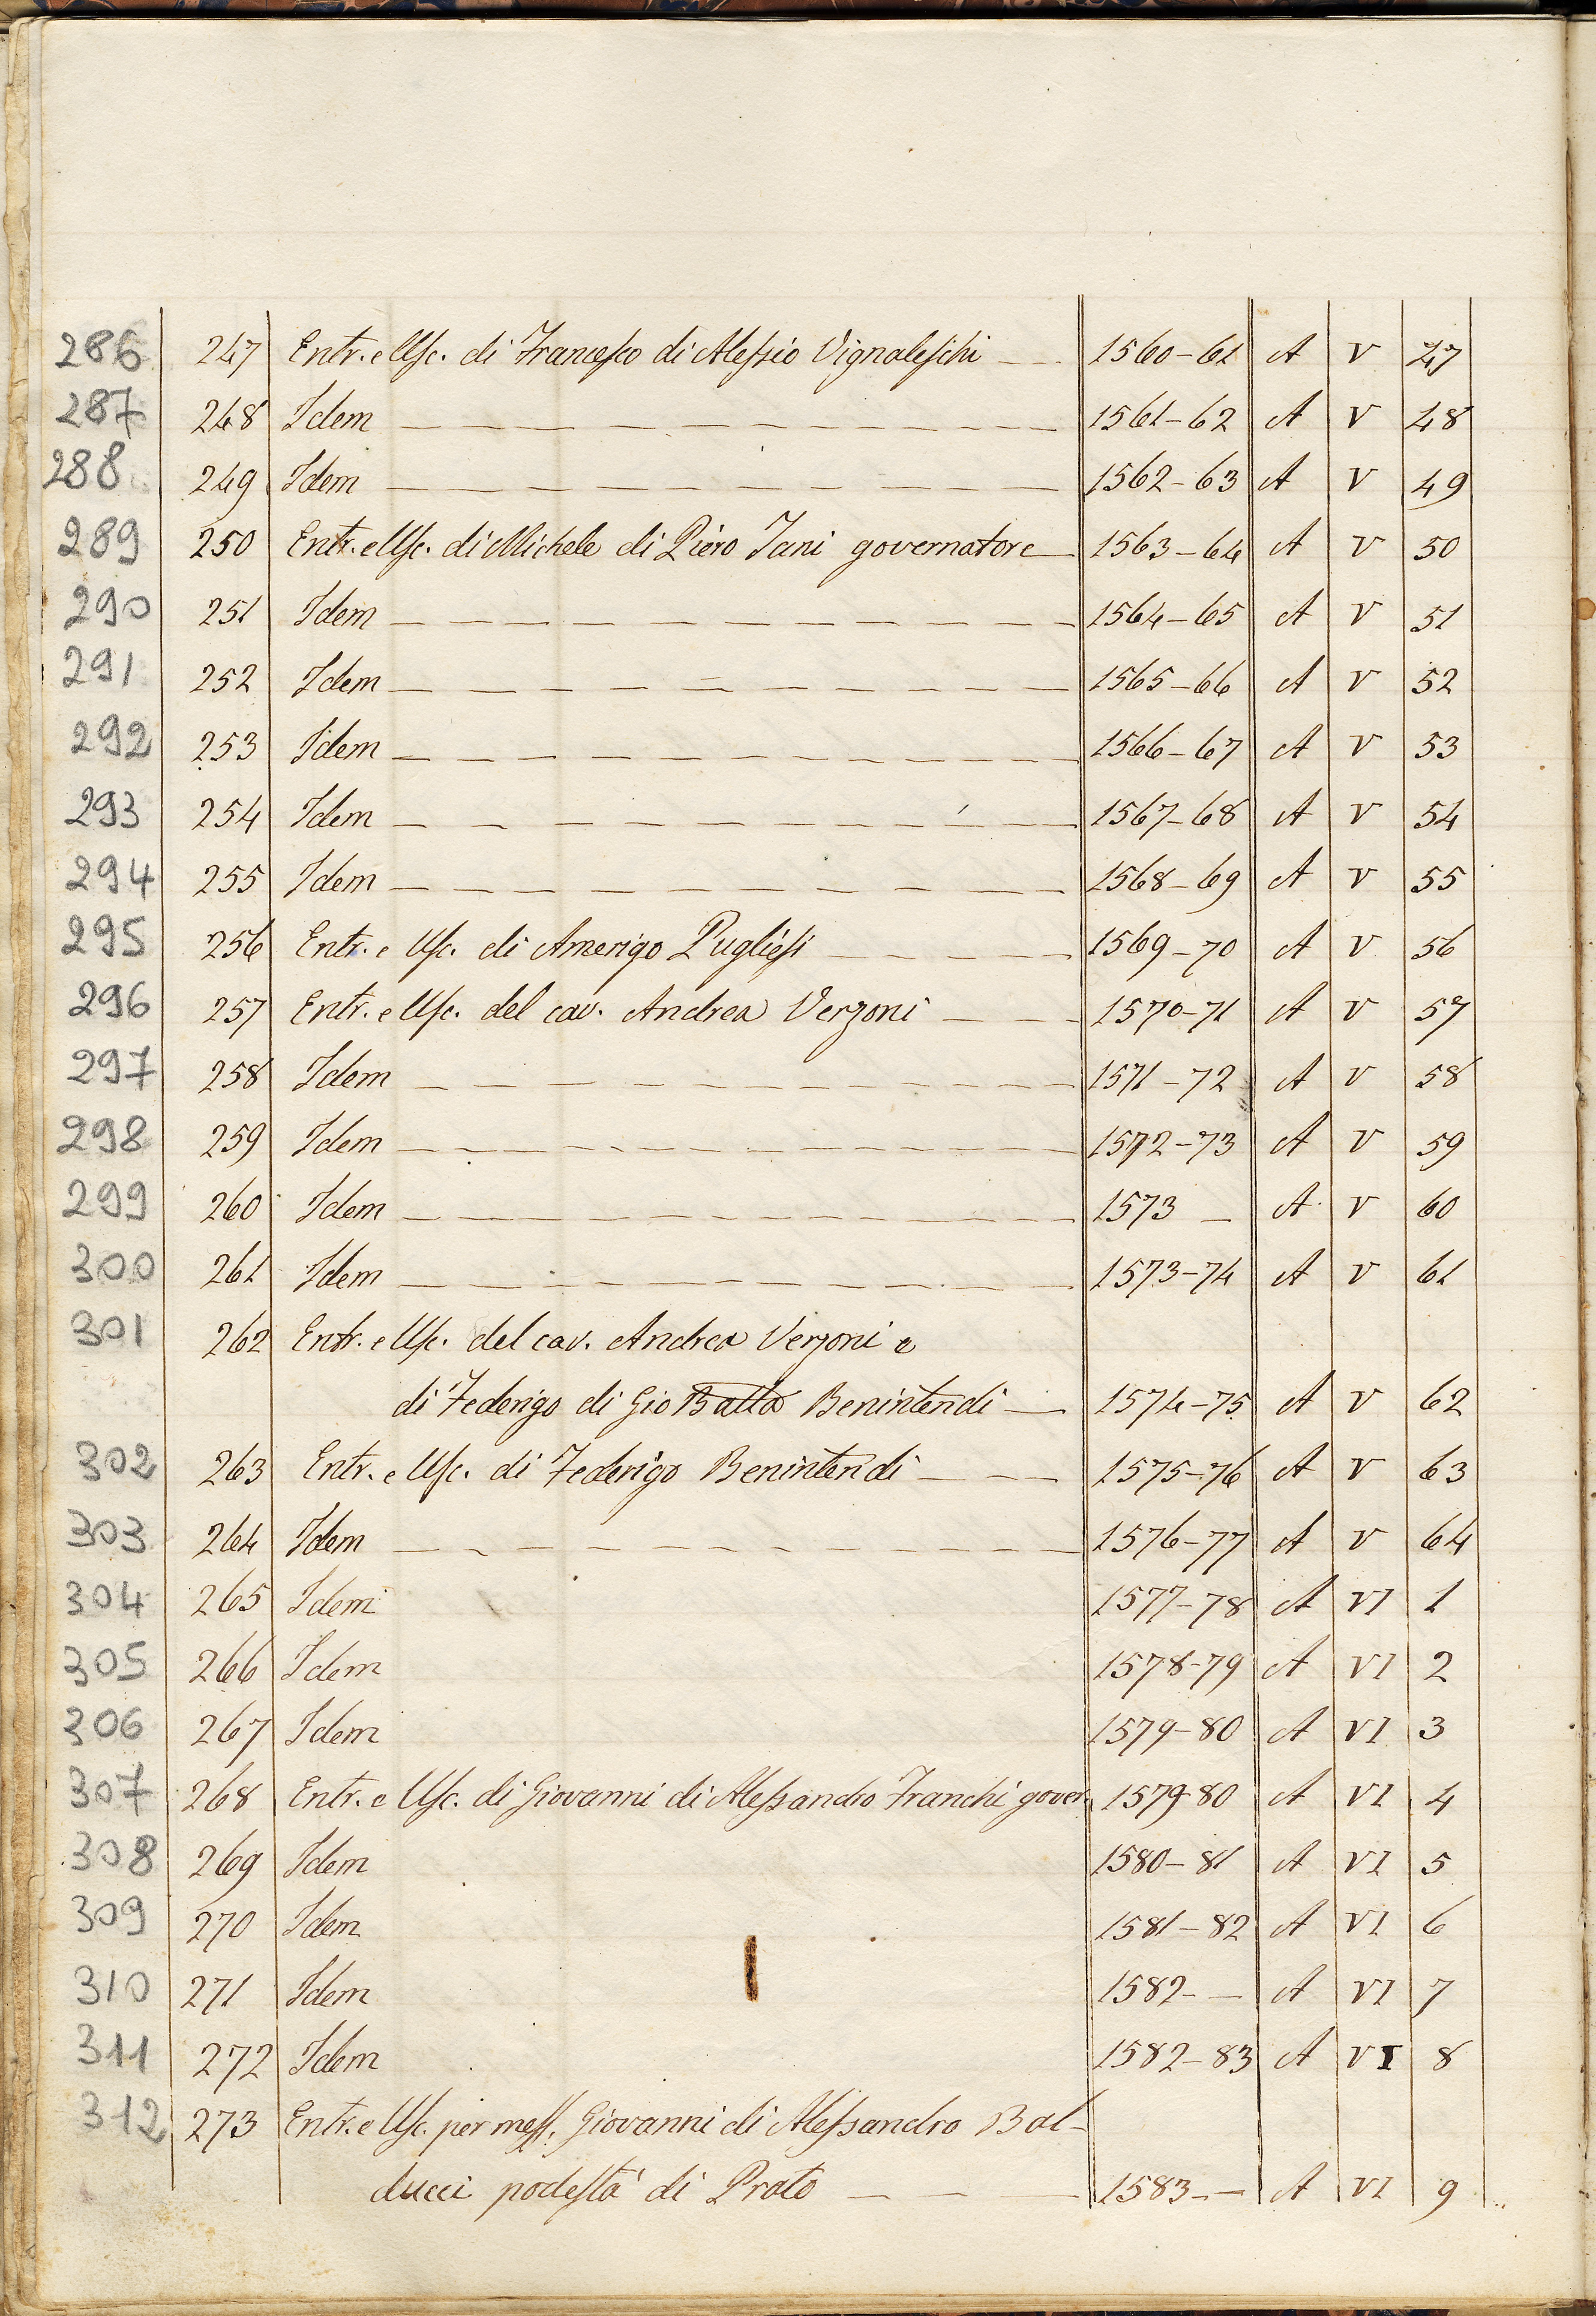 286 247 Entr. e Usc. di Francesco di Alessio Vignaleschi — 1560-61 A V 47
287 248 Idem — 1561-62 A V 48
288 249 Idem — 1562-63 A V 49
289 250 Entr. e Usc. di Michele di Piero Jani governatore — 1563-64 A V 50
290 251 Idem — 1564-65 A V 51
291 252 Idem — 1565-66 A V 52
292 253 Idem — 1566-67 A V 53
293 254 Idem — 1567-68 A V 54
294 255 Idem — 1568-69 A V 55
295 256 Entr. e Usc. di Amerigo Pugliesi — 1569-70 A V 56
296 257 Entr. e Usc. del cav. Andrea Verzoni — 1570-71 A V 57
297 258 Idem — 1571-72 A V 58
298 259 Idem — 1572-73 A V 59
299 260 Idem — 1573 — A V 60
300 261 Idem — 1573-74 A V 61
301 262 Entr. e Usc. del cav. Andrea Verzoni e
di Federigo di Gio Batta Benintendi — 1574-75 A V 62
302 263 Entr. e Usc. di Federigo Benintendi — 1575-76 A V 63
303 264 Idem — 1576-77 A V 64
304 265 Idem 1577-78 A VI 1
305 266 Idem 1578-79 A VI 2
306 267 Idem 1579-80 A VI 3
307 268 Entr. e Usc. di Giovanni di Alessandro Franchi gover. 1579-80 A VI 4
308 269 Idem 1580-81 A VI 5
309 270 Idem 1581-82 A VI 6
310 271 Idem 1582- — A VI 7
311 272 Idem 1582-83 A VI 8
312 273 Entr. e Usc. per mess. Giovanni di Alessandro Bal-
ducci podestà di Prato — 1583 — A VI 9